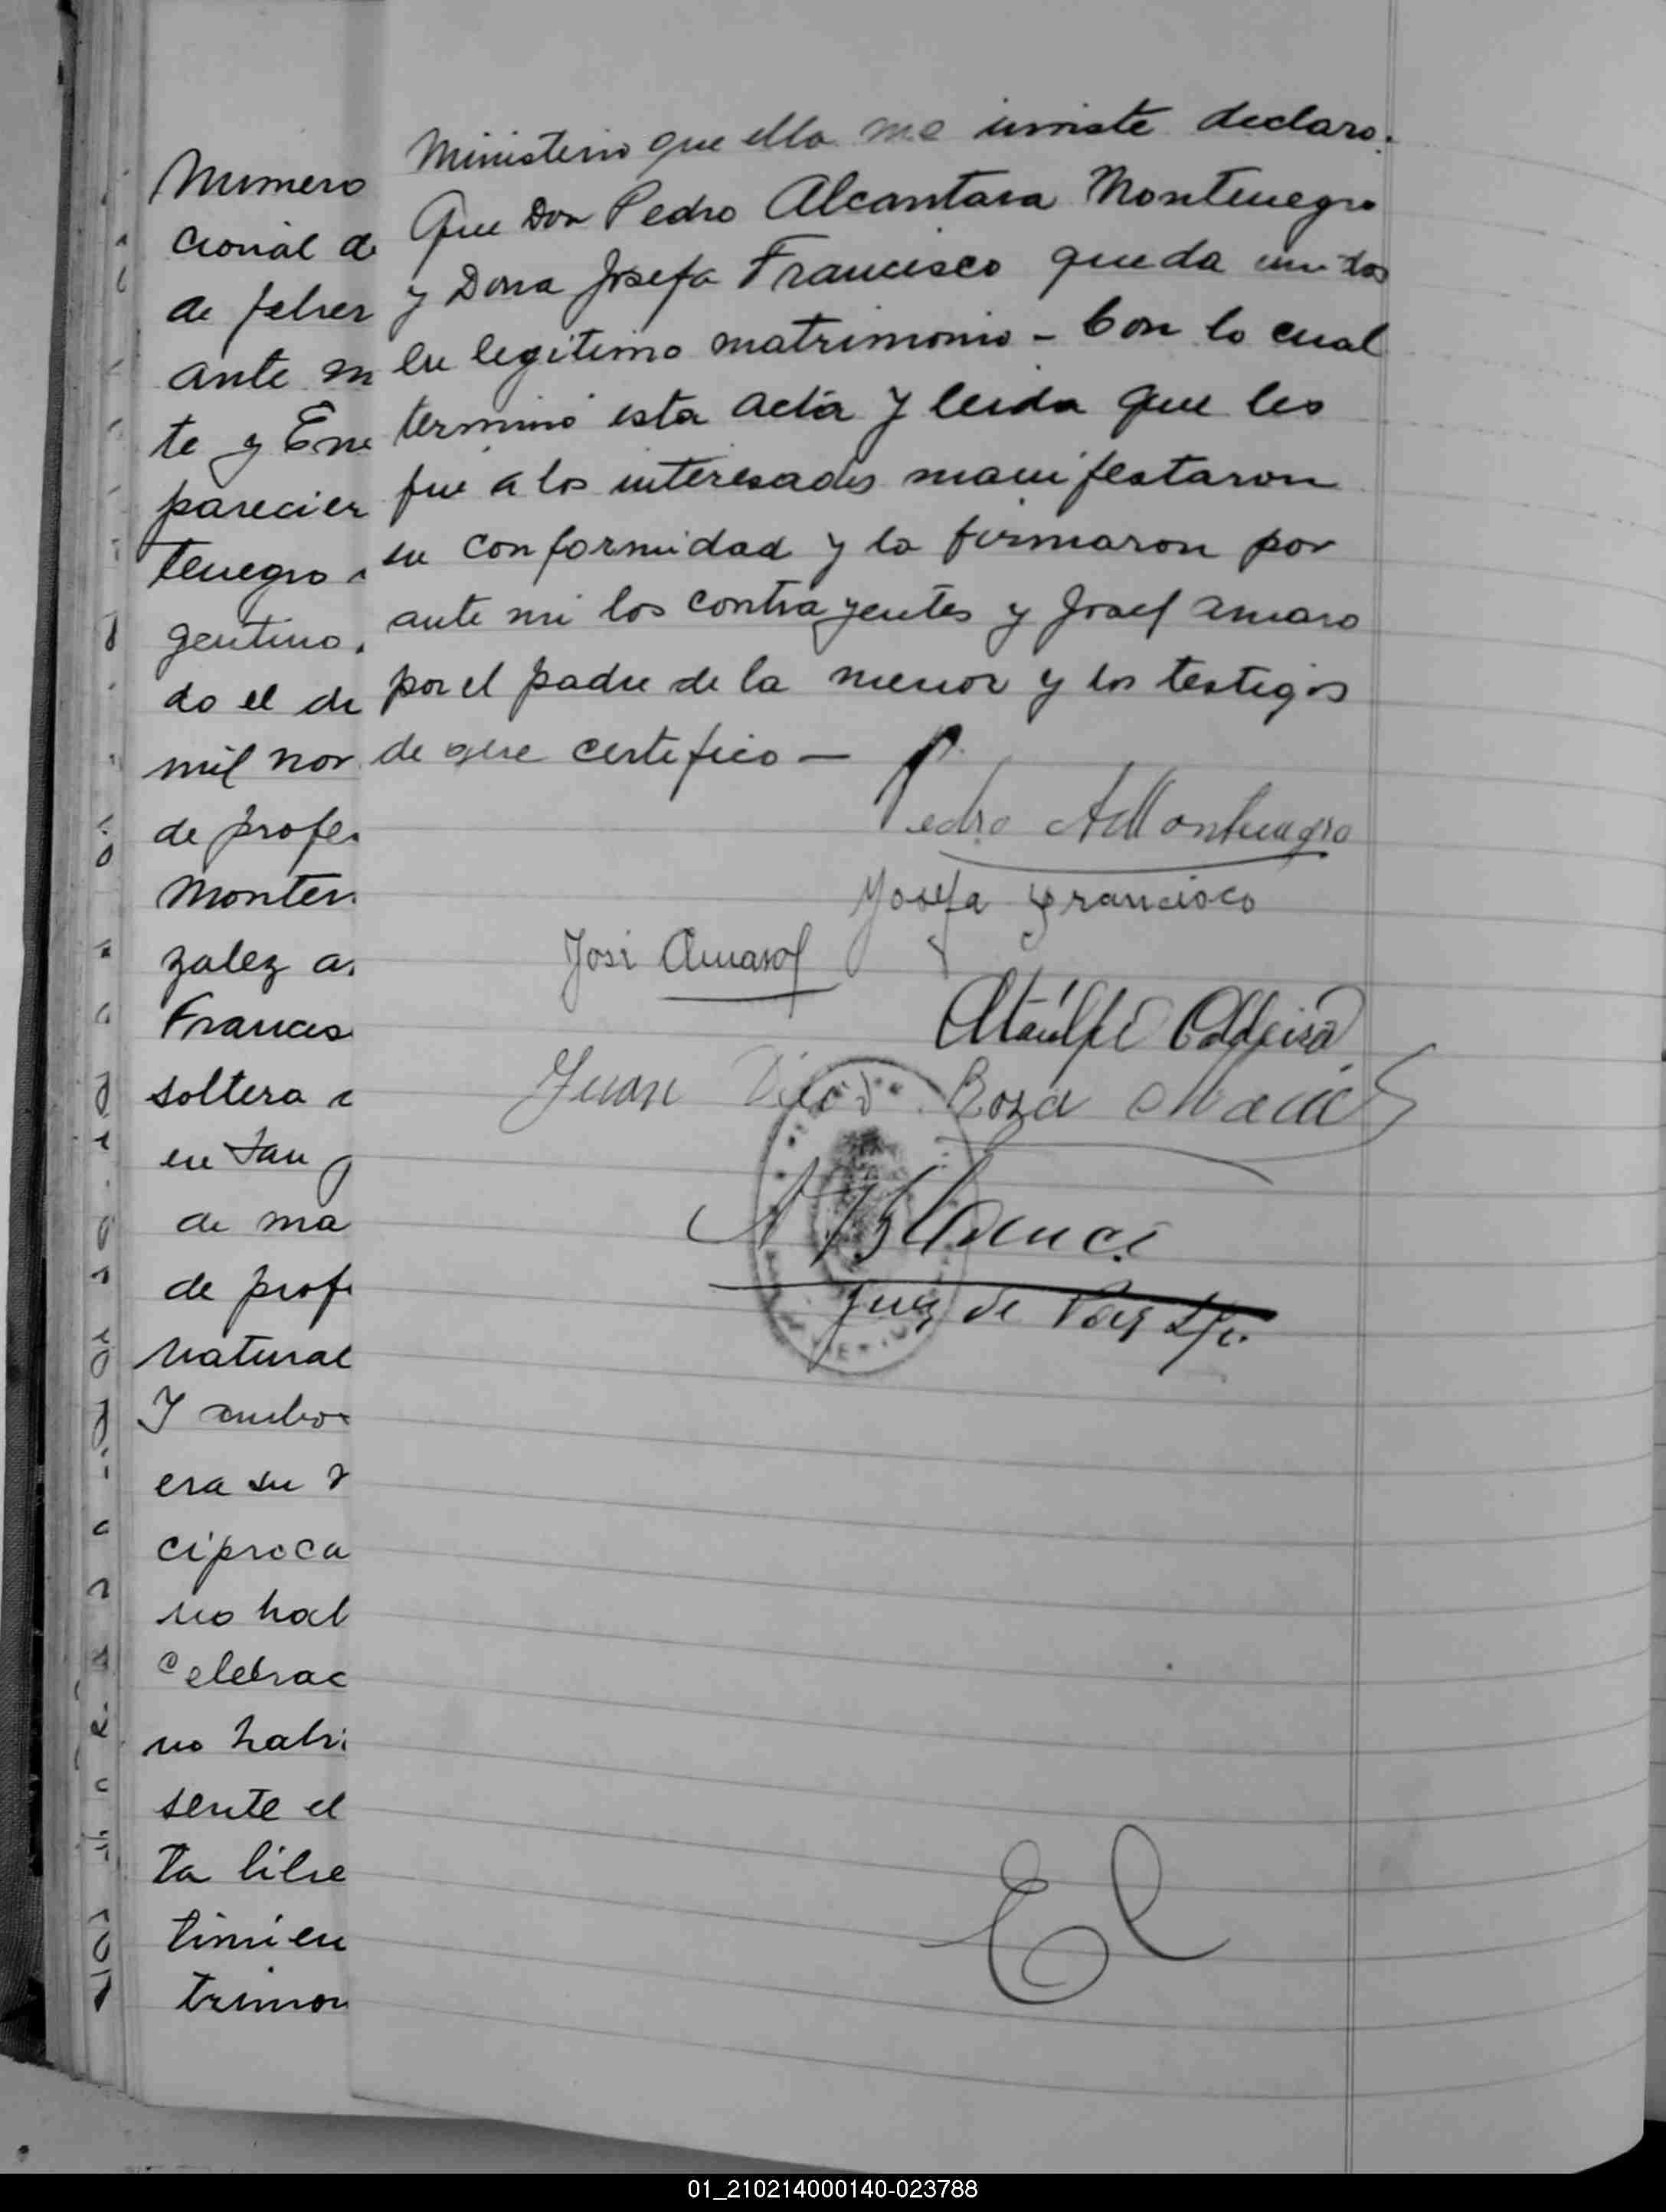 Numero
cional de
de febrer
ante m
te y Ene
parecier
tenegro
gentino,
do el de
mil nov
de profes
Monten
zalez a
Francis
soltera
en San
de ma
de prof
natural
Y ambos
era su
ciproca
no hab
celebrac
no habi
sente el
ta libre
timien
trimon
Ministerio que ella me inviste declaro:
Que Don Pedro Alcantara Montenegro
y Dona Josefa Francisco queda unidos
en legitimo matrimonio - Con lo cual
terminó esta acta y leida que les
fue a los interesados manifestaron
su conformidad y la firmaron por
ante mi los contrayentes y José Amaro
por el padre de la menor y los testigos
de que certifico —
Pedro A Montenegro
Josefa Francisco
José Amaro
Ataúlfo
Juan Rosa
Juez de Paz
El
01_210214000140-023788